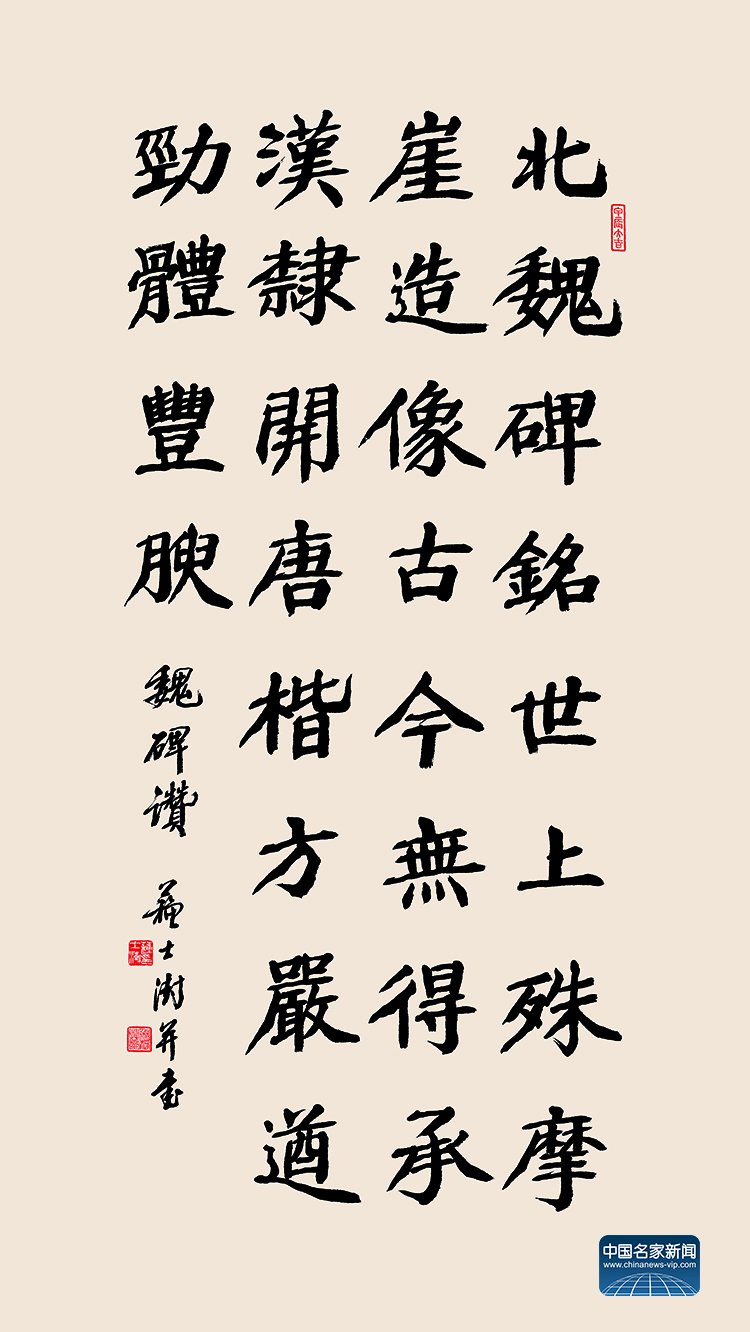 北魏碑銘世上殊摩
崖造像古今無得承
漢隸開唐楷方嚴遒
勁體豐腴
魏碑讚 蘇士澍并書
中国名家新闻
www.chinanews-vip.com